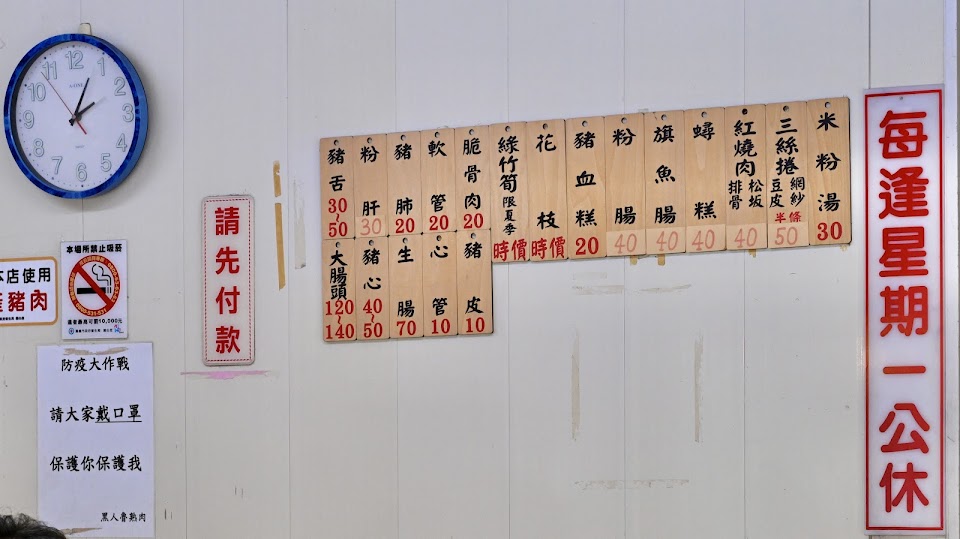 12
1
2
3
4
5
6
7
8
9
10
11
本店使用
產豬肉
本場所禁止吸菸
防疫大作戰
請大家戴口罩
保護你保護我
黑人魯熟肉
請先付款
米粉湯 30
三絲捲 豆皮 網紗 半條 50
紅燒肉 排骨 松坂 40
蟳糕 40
旗魚腸 40
粉腸 40
豬血糕 20
花枝 時價
綠竹筍 限夏季 時價
脆骨肉 20
軟管 20
豬肺 20
粉肝 30
豬舌 30~50
豬皮 10
心管 10
生腸 70
豬心 40~50
大腸頭 120~140
每逢星期一公休